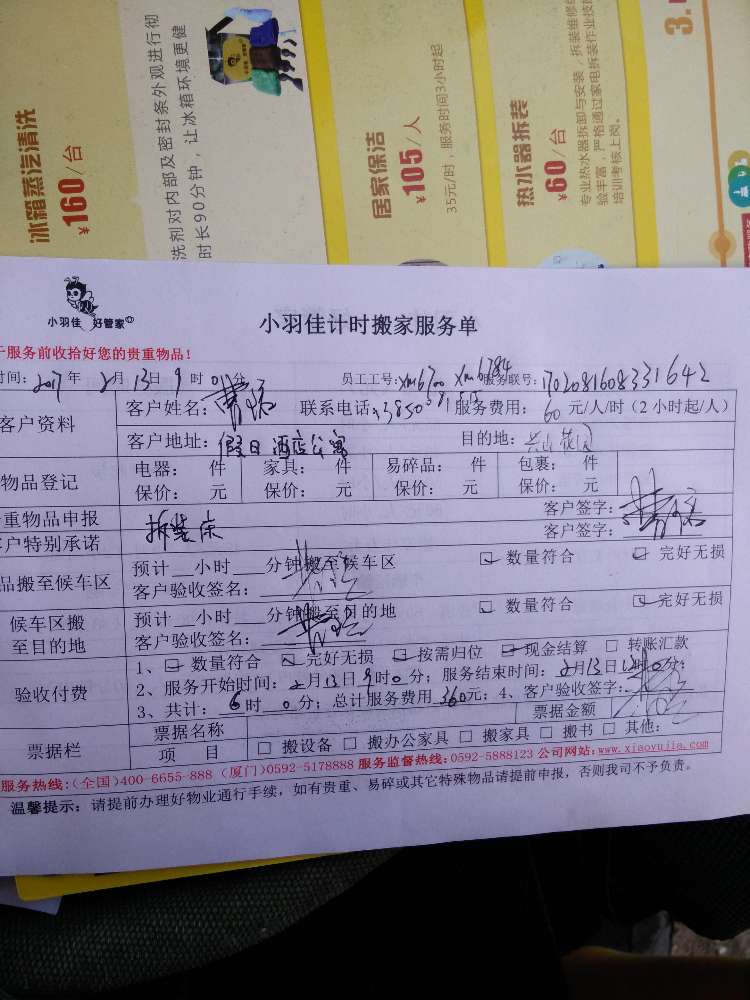 冰箱蒸汽清洗
¥160/台
洗剂对内部及密封条外观进行彻
时长90分钟，让冰箱环境更健
居家保洁
¥105/人
35元/时，服务时间3小时起
热水器拆装
¥60/台
专业热水器拆卸与安装，拆装维修经
验丰富，严格通过家电拆装作业技能
培训考核上岗。
3.
小羽佳 好管家
小羽佳计时搬家服务单
于服务前收拾好您的贵重物品！
时间：2017年 2月13日9时0分 员工工号：xm6700 xm6784 服务联号：170208160833 1642
客户资料
客户姓名： 联系电话 服务费用：60元/人/时（2小时起/人）
客户地址：假日酒店公寓 目的地：
物品登记
电器： 件 家具： 件 易碎品： 件 包裹： 件
保价： 元 保价： 元 保价： 元 保价： 元
重物品申报 拆装床 客户签字：
户特别承诺 客户签字：
品搬至候车区
预计__小时__分钟搬至候车区 数量符合 完好无损
客户验收签名：
候车区搬
至目的地
预计__小时__分钟搬至目的地 数量符合 完好无损
客户验收签名：
验收付费
1、 数量符合 完好无损 按需归位 现金结算 转账汇款
2、服务开始时间：2月13日9时0分；服务结束时间：2月13日 时0分；
3、共计：6时0分；总计服务费用360元；4、客户验收签字：
票据栏
票据名称 票据金额
项 目 搬设备 搬办公家具 搬家具 搬书 其他：
服务热线：(全国)400-6655-888 (厦门)0592-5178888 服务监督热线：0592-5888123 公司网站：www.xiaoyujia.com
温馨提示：请提前办理好物业通行手续，如有贵重、易碎或其它特殊物品请提前申报，否则我司不予负责。